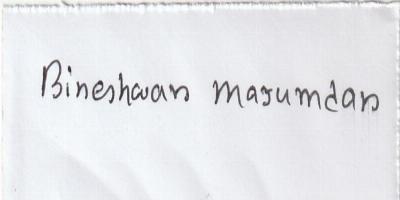 Bineshwar Masumdar